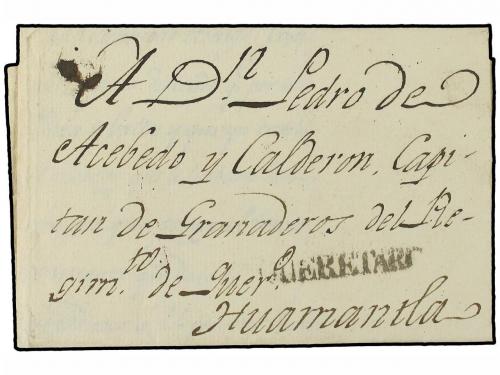 A Dn Pedro de
Acebedo y Calderon, Capi-
tan de Granaderos del Re-
gim.to de Quer.o
QUERETARO
Huamantla